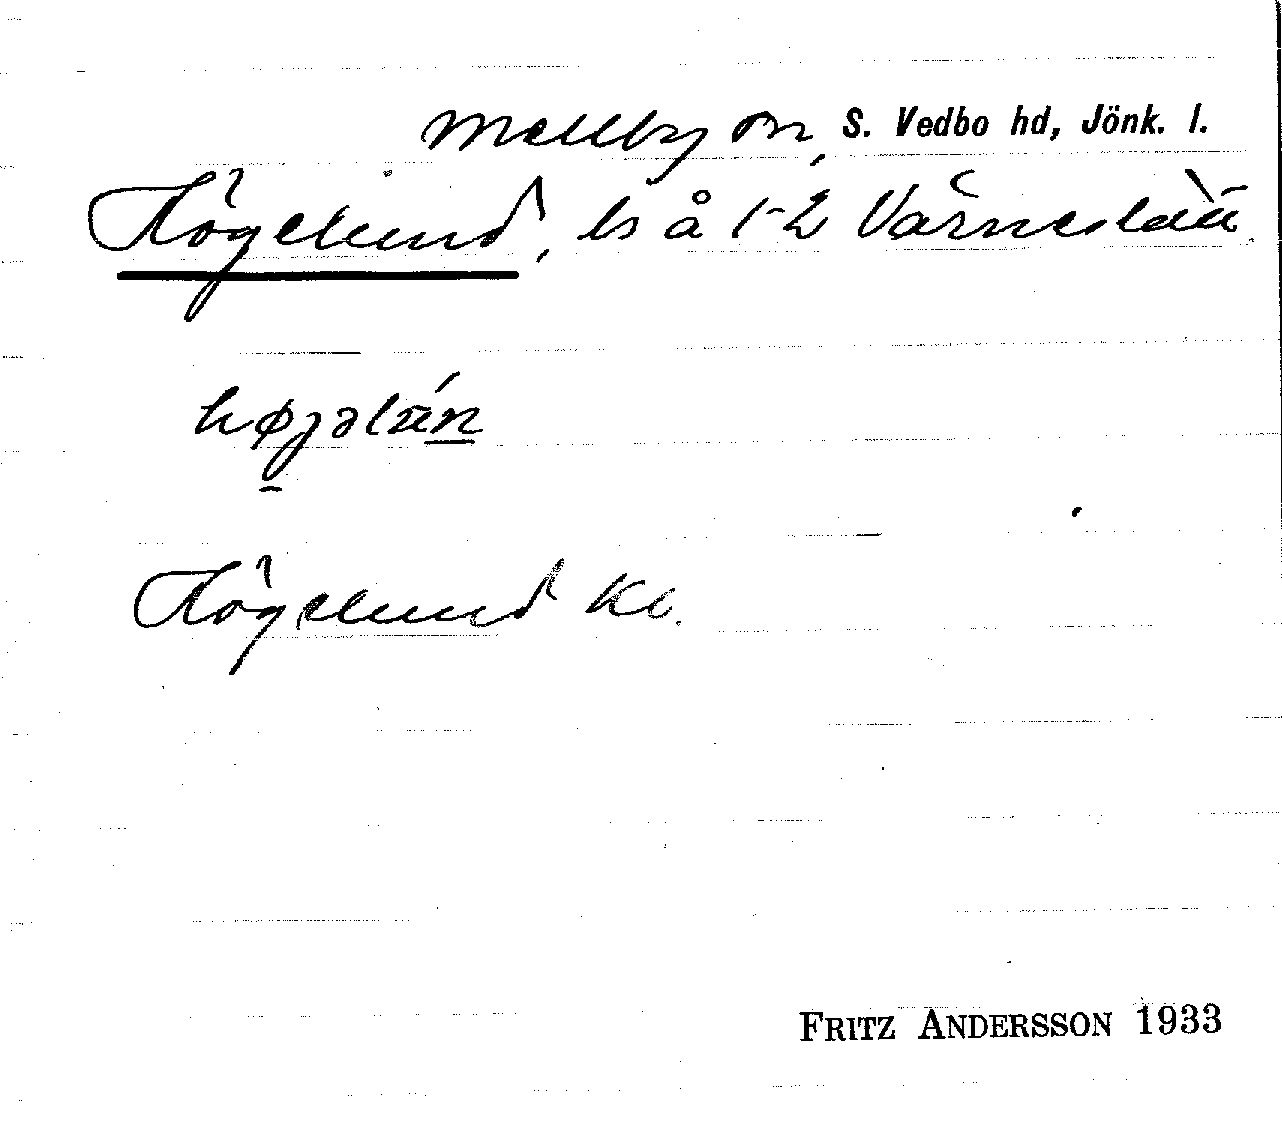 Mellby sn, S. Vedbo hd, Jönk. l.
Högelund, ls å 1-2 Värneslätt.
højəlún
Högelund Kl.
FRITZ ANDERSSON 1933